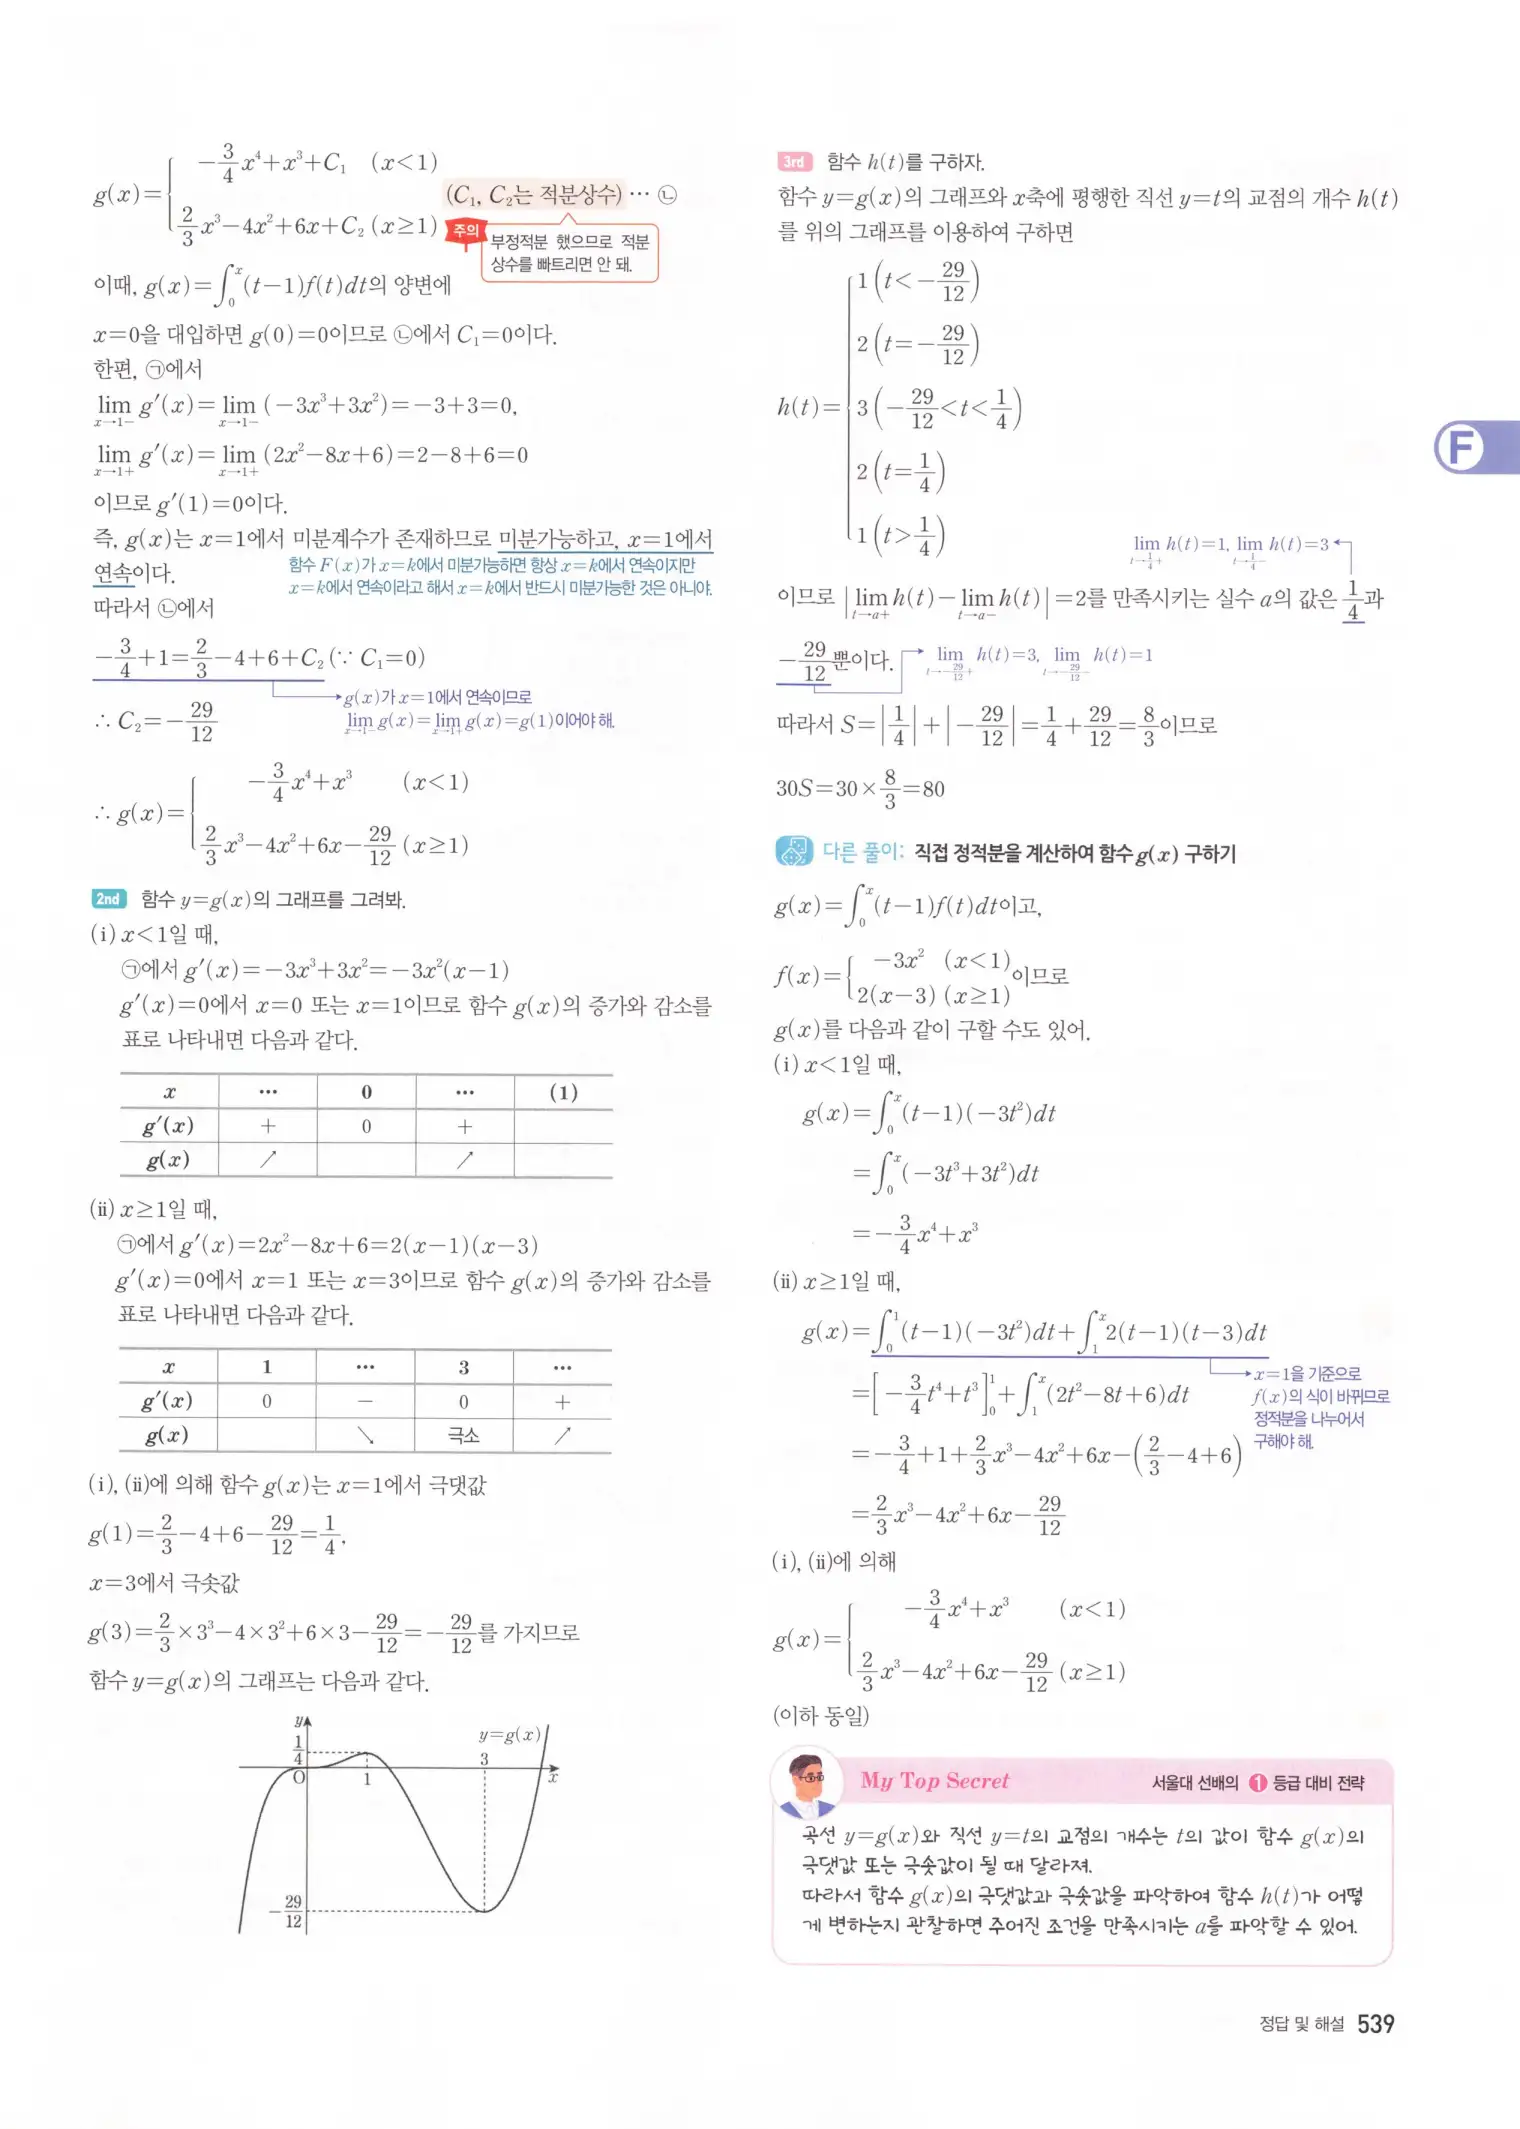 g(x)={ -3/4 x⁴+x³+C₁ (x<1)
2/3 x³-4x²+6x+C₂ (x≥1) (C₁, C₂는 적분상수) … ㉡
주의 부정적분 했으므로 적분
상수를 빠트리면 안 돼.
이때, g(x)=∫₀ˣ(t-1)f(t)dt의 양변에
x=0을 대입하면 g(0)=0이므로 ㉡에서 C₁=0이다.
한편, ㉠에서
lim_{x→1-} g′(x)=lim_{x→1-} (-3x³+3x²)=-3+3=0,
lim_{x→1+} g′(x)=lim_{x→1+} (2x²-8x+6)=2-8+6=0
이므로 g′(1)=0이다.
즉, g(x)는 x=1에서 미분계수가 존재하므로 미분가능하고, x=1에서
연속이다.
함수 F(x)가 x=k에서 미분가능하면 항상 x=k에서 연속이지만
x=k에서 연속이라고 해서 x=k에서 반드시 미분가능한 것은 아니야.
따라서 ㉡에서
-3/4+1=2/3-4+6+C₂ (∵ C₁=0)
g(x)가 x=1에서 연속이므로
lim_{x→1-} g(x)=lim_{x→1+} g(x)=g(1)이어야 해.
∴ C₂=-29/12
∴ g(x)={ -3/4 x⁴+x³ (x<1)
2/3 x³-4x²+6x-29/12 (x≥1)
2nd 함수 y=g(x)의 그래프를 그려봐.
(i) x<1일 때,
㉠에서 g′(x)=-3x³+3x²=-3x²(x-1)
g′(x)=0에서 x=0 또는 x=1이므로 함수 g(x)의 증가와 감소를
표로 나타내면 다음과 같다.
x … 0 … (1)
g′(x) + 0 +
g(x) ↗ ↗
(ii) x≥1일 때,
㉠에서 g′(x)=2x²-8x+6=2(x-1)(x-3)
g′(x)=0에서 x=1 또는 x=3이므로 함수 g(x)의 증가와 감소를
표로 나타내면 다음과 같다.
x 1 … 3 …
g′(x) 0 - 0 +
g(x) ↘ 극소 ↗
(i), (ii)에 의해 함수 g(x)는 x=1에서 극댓값
g(1)=2/3-4+6-29/12=1/4,
x=3에서 극솟값
g(3)=2/3×3³-4×3²+6×3-29/12=-29/12를 가지므로
함수 y=g(x)의 그래프는 다음과 같다.
y
y=g(x)
1/4
3
O 1 x
-29/12
3rd 함수 h(t)를 구하자.
함수 y=g(x)의 그래프와 x축에 평행한 직선 y=t의 교점의 개수 h(t)
를 위의 그래프를 이용하여 구하면
h(t)={ 1 (t<-29/12)
2 (t=-29/12)
3 (-29/12<t<1/4)
2 (t=1/4)
1 (t>1/4)
lim_{t→1/4+} h(t)=1, lim_{t→1/4-} h(t)=3
이므로 |lim_{t→a+} h(t)-lim_{t→a-} h(t)|=2를 만족시키는 실수 a의 값은 1/4과
-29/12뿐이다. lim_{t→-29/12+} h(t)=3, lim_{t→-29/12-} h(t)=1
따라서 S=|1/4|+|-29/12|=1/4+29/12=8/3이므로
30S=30×8/3=80
다른 풀이: 직접 정적분을 계산하여 함수 g(x) 구하기
g(x)=∫₀ˣ(t-1)f(t)dt이고,
f(x)={ -3x² (x<1)
2(x-3) (x≥1) 이므로
g(x)를 다음과 같이 구할 수도 있어.
(i) x<1일 때,
g(x)=∫₀ˣ(t-1)(-3t²)dt
=∫₀ˣ(-3t³+3t²)dt
=-3/4 x⁴+x³
(ii) x≥1일 때,
g(x)=∫₀¹(t-1)(-3t²)dt+∫₁ˣ2(t-1)(t-3)dt
=[-3/4 t⁴+t³]₀¹+∫₁ˣ(2t²-8t+6)dt
x=1을 기준으로
f(x)의 식이 바뀌므로
정적분을 나누어서
구해야 해.
=-3/4+1+2/3 x³-4x²+6x-(2/3-4+6)
=2/3 x³-4x²+6x-29/12
(i), (ii)에 의해
g(x)={ -3/4 x⁴+x³ (x<1)
2/3 x³-4x²+6x-29/12 (x≥1)
(이하 동일)
My Top Secret 서울대 선배의 ❶ 등급 대비 전략
곡선 y=g(x)와 직선 y=t의 교점의 개수는 t의 값이 함수 g(x)의
극댓값 또는 극솟값이 될 때 달라져.
따라서 함수 g(x)의 극댓값과 극솟값을 파악하여 함수 h(t)가 어떻
게 변하는지 관찰하면 주어진 조건을 만족시키는 a를 파악할 수 있어.
F
정답 및 해설 539